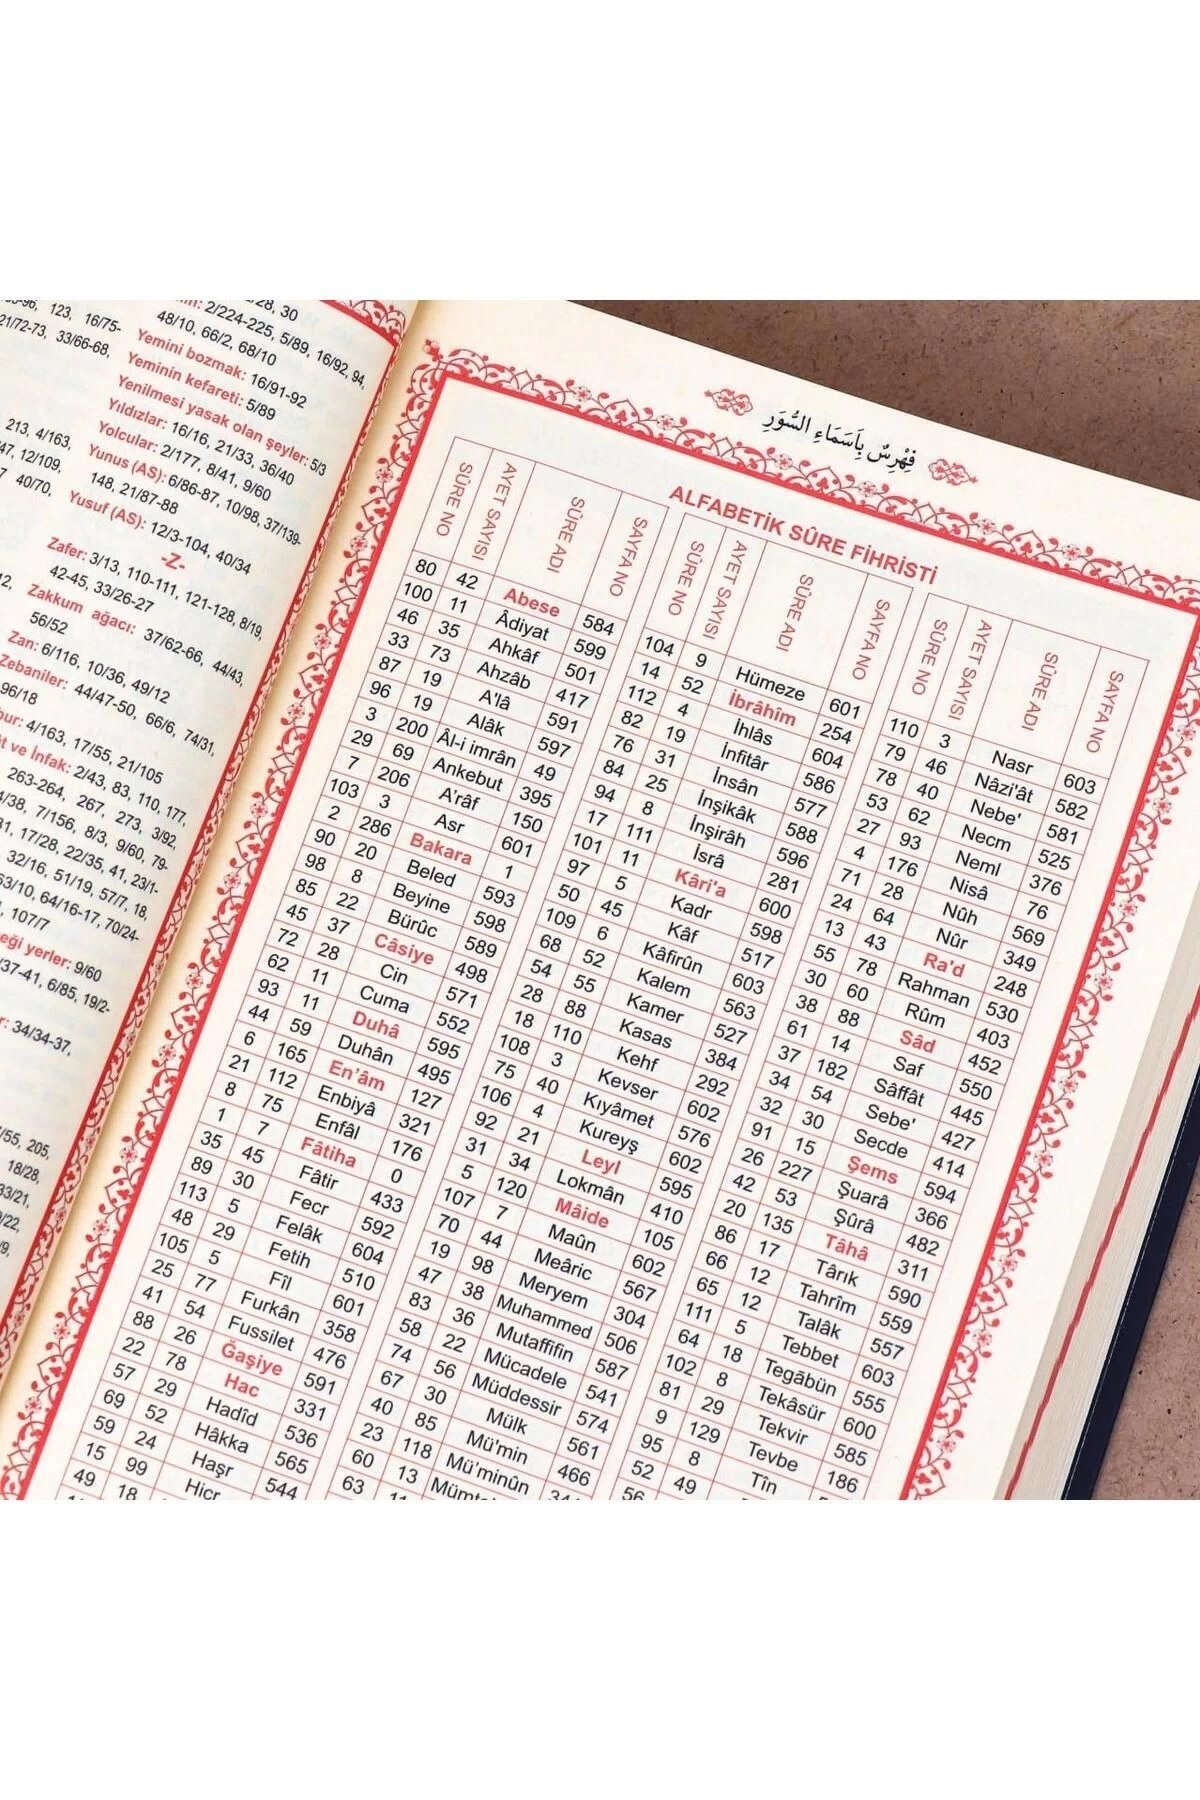 123, 16/75-
21/72-73, 33/66-68,
213, 4/163,
12/109,
40/70,
2/224-225, 5/89, 16/92, 94,
48/10, 66/2, 68/10
Yemini bozmak: 16/91-92
Yeminin kefareti: 5/89
Yenilmesi yasak olan şeyler: 5/3
Yıldızlar: 16/16, 21/33, 36/40
Yolcular: 2/177, 8/41, 9/60
Yunus (AS): 6/86-87, 10/98, 37/139-
148, 21/87-88
Yusuf (AS): 12/3-104, 40/34
-Z-
Zafer: 3/13, 110-111, 121-128, 8/19,
42-45, 33/26-27
Zakkum ağacı: 37/62-66, 44/43,
56/52
Zan: 6/116, 10/36, 49/12
Zebaniler: 44/47-50, 66/6, 74/31,
96/18
4/163, 17/55, 21/105
ve İnfak: 2/43, 83, 110, 177,
263-264, 267, 273, 3/92,
7/156, 8/3, 9/60, 79-
17/28, 22/35, 41, 23/1-
32/16, 51/19, 57/7, 18,
63/10, 64/16-17, 70/24-
107/7
yerler: 9/60
37-41, 6/85, 19/2-
34/34-37,
205,
18/28,
فِهْرِسٌ بِاَسَمَاءِ السُّوَرِ
ALFABETİK SÛRE FİHRİSTİ
SÛRE NO AYET SAYISI SÛRE ADI SAYFA NO
80 42 Abese 584
100 11 Âdiyat 599
46 35 Ahkâf 501
33 73 Ahzâb 417
87 19 A'lâ 591
96 19 Alâk 597
3 200 Âl-i imrân 49
29 69 Ankebut 395
7 206 A'râf 150
103 3 Asr 601
2 286 Bakara 1
90 20 Beled 593
98 8 Beyine 598
85 22 Bürûc 589
45 37 Câsiye 498
72 28 Cin 571
62 11 Cuma 552
93 11 Duhâ 595
44 59 Duhân 495
6 165 En'âm 127
21 112 Enbiyâ 321
8 75 Enfâl 176
1 7 Fâtiha 0
35 45 Fâtir 433
89 30 Fecr 592
113 5 Felâk 604
48 29 Fetih 510
105 5 Fîl 601
25 77 Furkân 358
41 54 Fussilet 476
88 26 Ğaşiye 591
22 78 Hac 331
57 29 Hadîd 536
69 52 Hâkka 565
59 24 Haşr 544
15 99 Hicr
49 18
SÛRE NO AYET SAYISI SÛRE ADI SAYFA NO
104 9 Hümeze 601
14 52 İbrâhîm 254
112 4 İhlâs 604
82 19 İnfitâr 586
76 31 İnsân 577
84 25 İnşikâk 588
94 8 İnşirâh 596
17 111 İsrâ 281
101 11 Kâri'a 600
97 5 Kadr 598
50 45 Kâf 517
109 6 Kâfirûn 603
68 52 Kalem 563
54 55 Kamer 527
28 88 Kasas 384
18 110 Kehf 292
108 3 Kevser 602
75 40 Kıyâmet 576
106 4 Kureyş 602
92 21 Leyl 595
31 34 Lokmân 410
5 120 Mâide 105
107 7 Maûn 602
70 44 Meâric 567
19 98 Meryem 304
47 38 Muhammed 506
83 36 Mutaffifin 587
58 22 Mücadele 541
74 56 Müddessir 574
67 30 Mülk 561
40 85 Mü'min 466
23 118 Mü'minûn
60 13
63
SÛRE NO AYET SAYISI SÛRE ADI SAYFA NO
110 3 Nasr 603
79 46 Nâzi'ât 582
78 40 Nebe' 581
53 62 Necm 525
27 93 Neml 376
4 176 Nisâ 76
71 28 Nûh 569
24 64 Nûr 349
13 43 Ra'd 248
55 78 Rahman 530
30 60 Rûm 403
38 88 Sâd 452
61 14 Saf 550
37 182 Sâffât 445
34 54 Sebe' 427
32 30 Secde 414
91 15 Şems 594
26 227 Şuarâ 366
42 53 Şûrâ 482
20 135 Tâhâ 311
86 17 Târık 590
66 12 Tahrîm 559
65 12 Talâk 557
111 5 Tebbet 603
64 18 Tegâbün 555
102 8 Tekâsür 600
81 29 Tekvir 585
9 129 Tevbe 186
95 8 Tîn
52 49